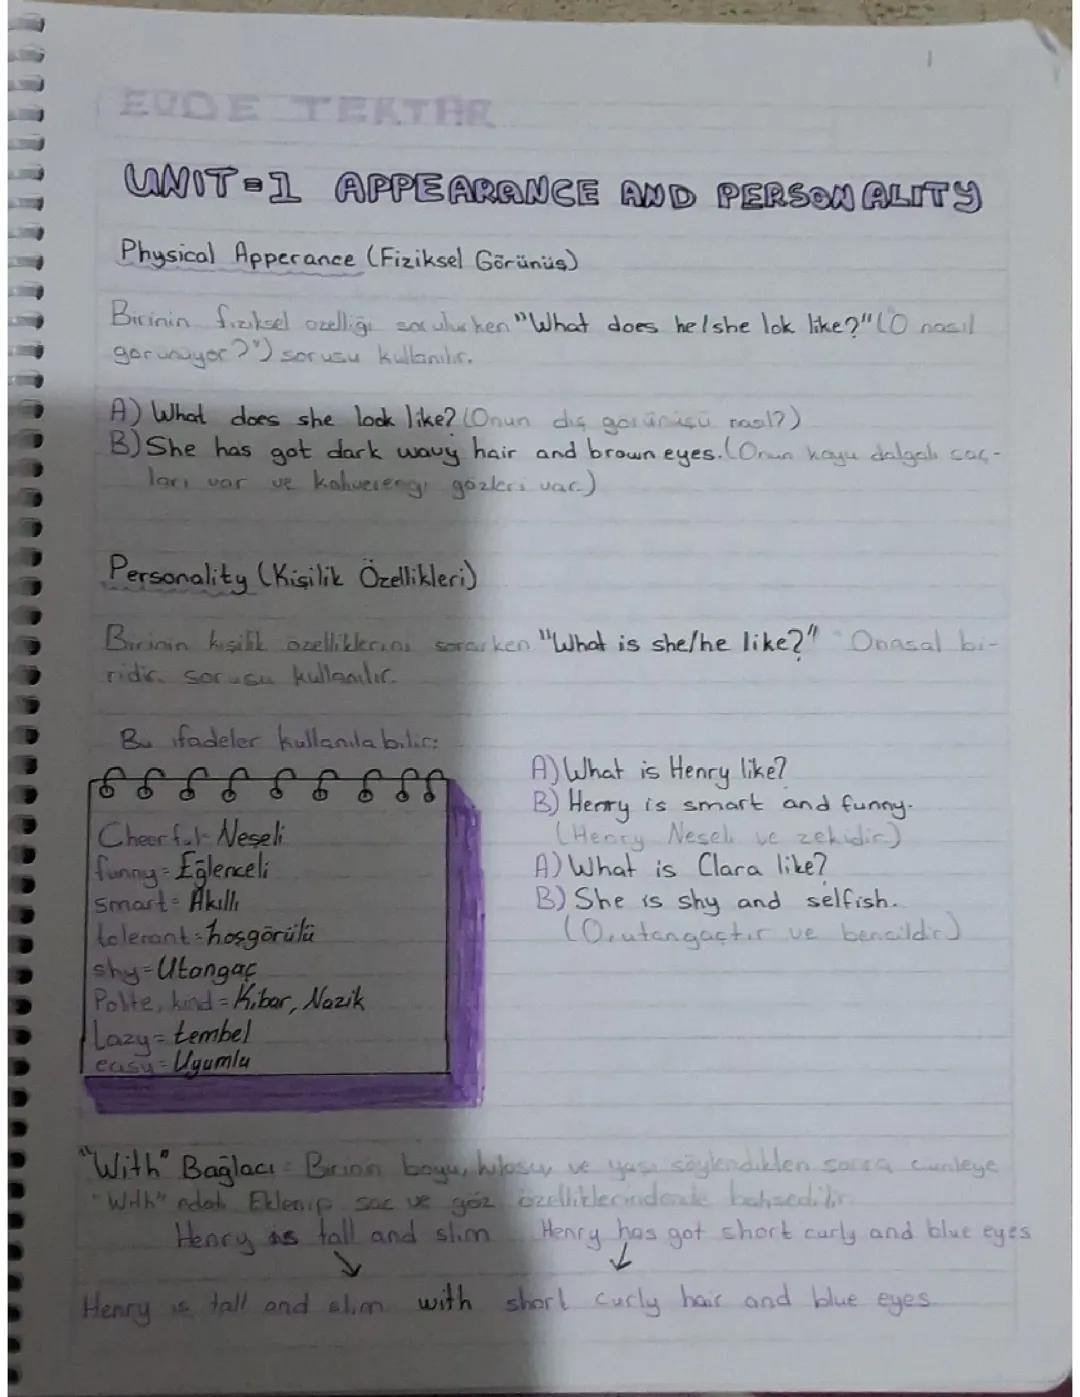 EVDE TEKTAR
UNIT=1 APPEARANCE AND PERSONALITY
Physical Apperance (Fiziksel Görünüş)
Birinin fiziksel özelliği sorulurken "What does he/she lok like?" (O nasıl
görünüyor?") sorusu kullanılır.
A) What does she look like? (Onun dış görünüşü nasıl?)
B) She has got dark wavy hair and brown eyes. (Onun koyu dalgalı saç-
ları var ve kahverengi gözleri var.)
Personality (Kişilik Özellikleri)
Birinin kişilik özelliklerini sorarken "What is she/he like?" "Onasal bi-
ridir. sorusu kullanılır.
Bu ifadeler kullanılabilir:
Cheerful- Neşeli
funny= Eğlenceli
smart= Akıllı
tolerant=hoşgörülü
shy=Utangaç
Polite, kind = Kibar, Nazik
Lazy= tembel
easy=Uyumlu
A) What is Henry like?
B) Henry is smart and funny.
(Henry Neşeli ve zekidir.)
A) What is Clara like?
B) She is shy and selfish.
(O, utangaçtır ve bencildir)
"With" Bağlacı = Birinin boyu, kilosu, ve yaşı söylendikten sonra cümleye
"With" edatı Eklenip saç ve göz özelliklerindende bahsedilir.
Henry is tall and slim Henry has got short curly and blue eyes
Henry is tall and slim with short curly hair and blue eyes